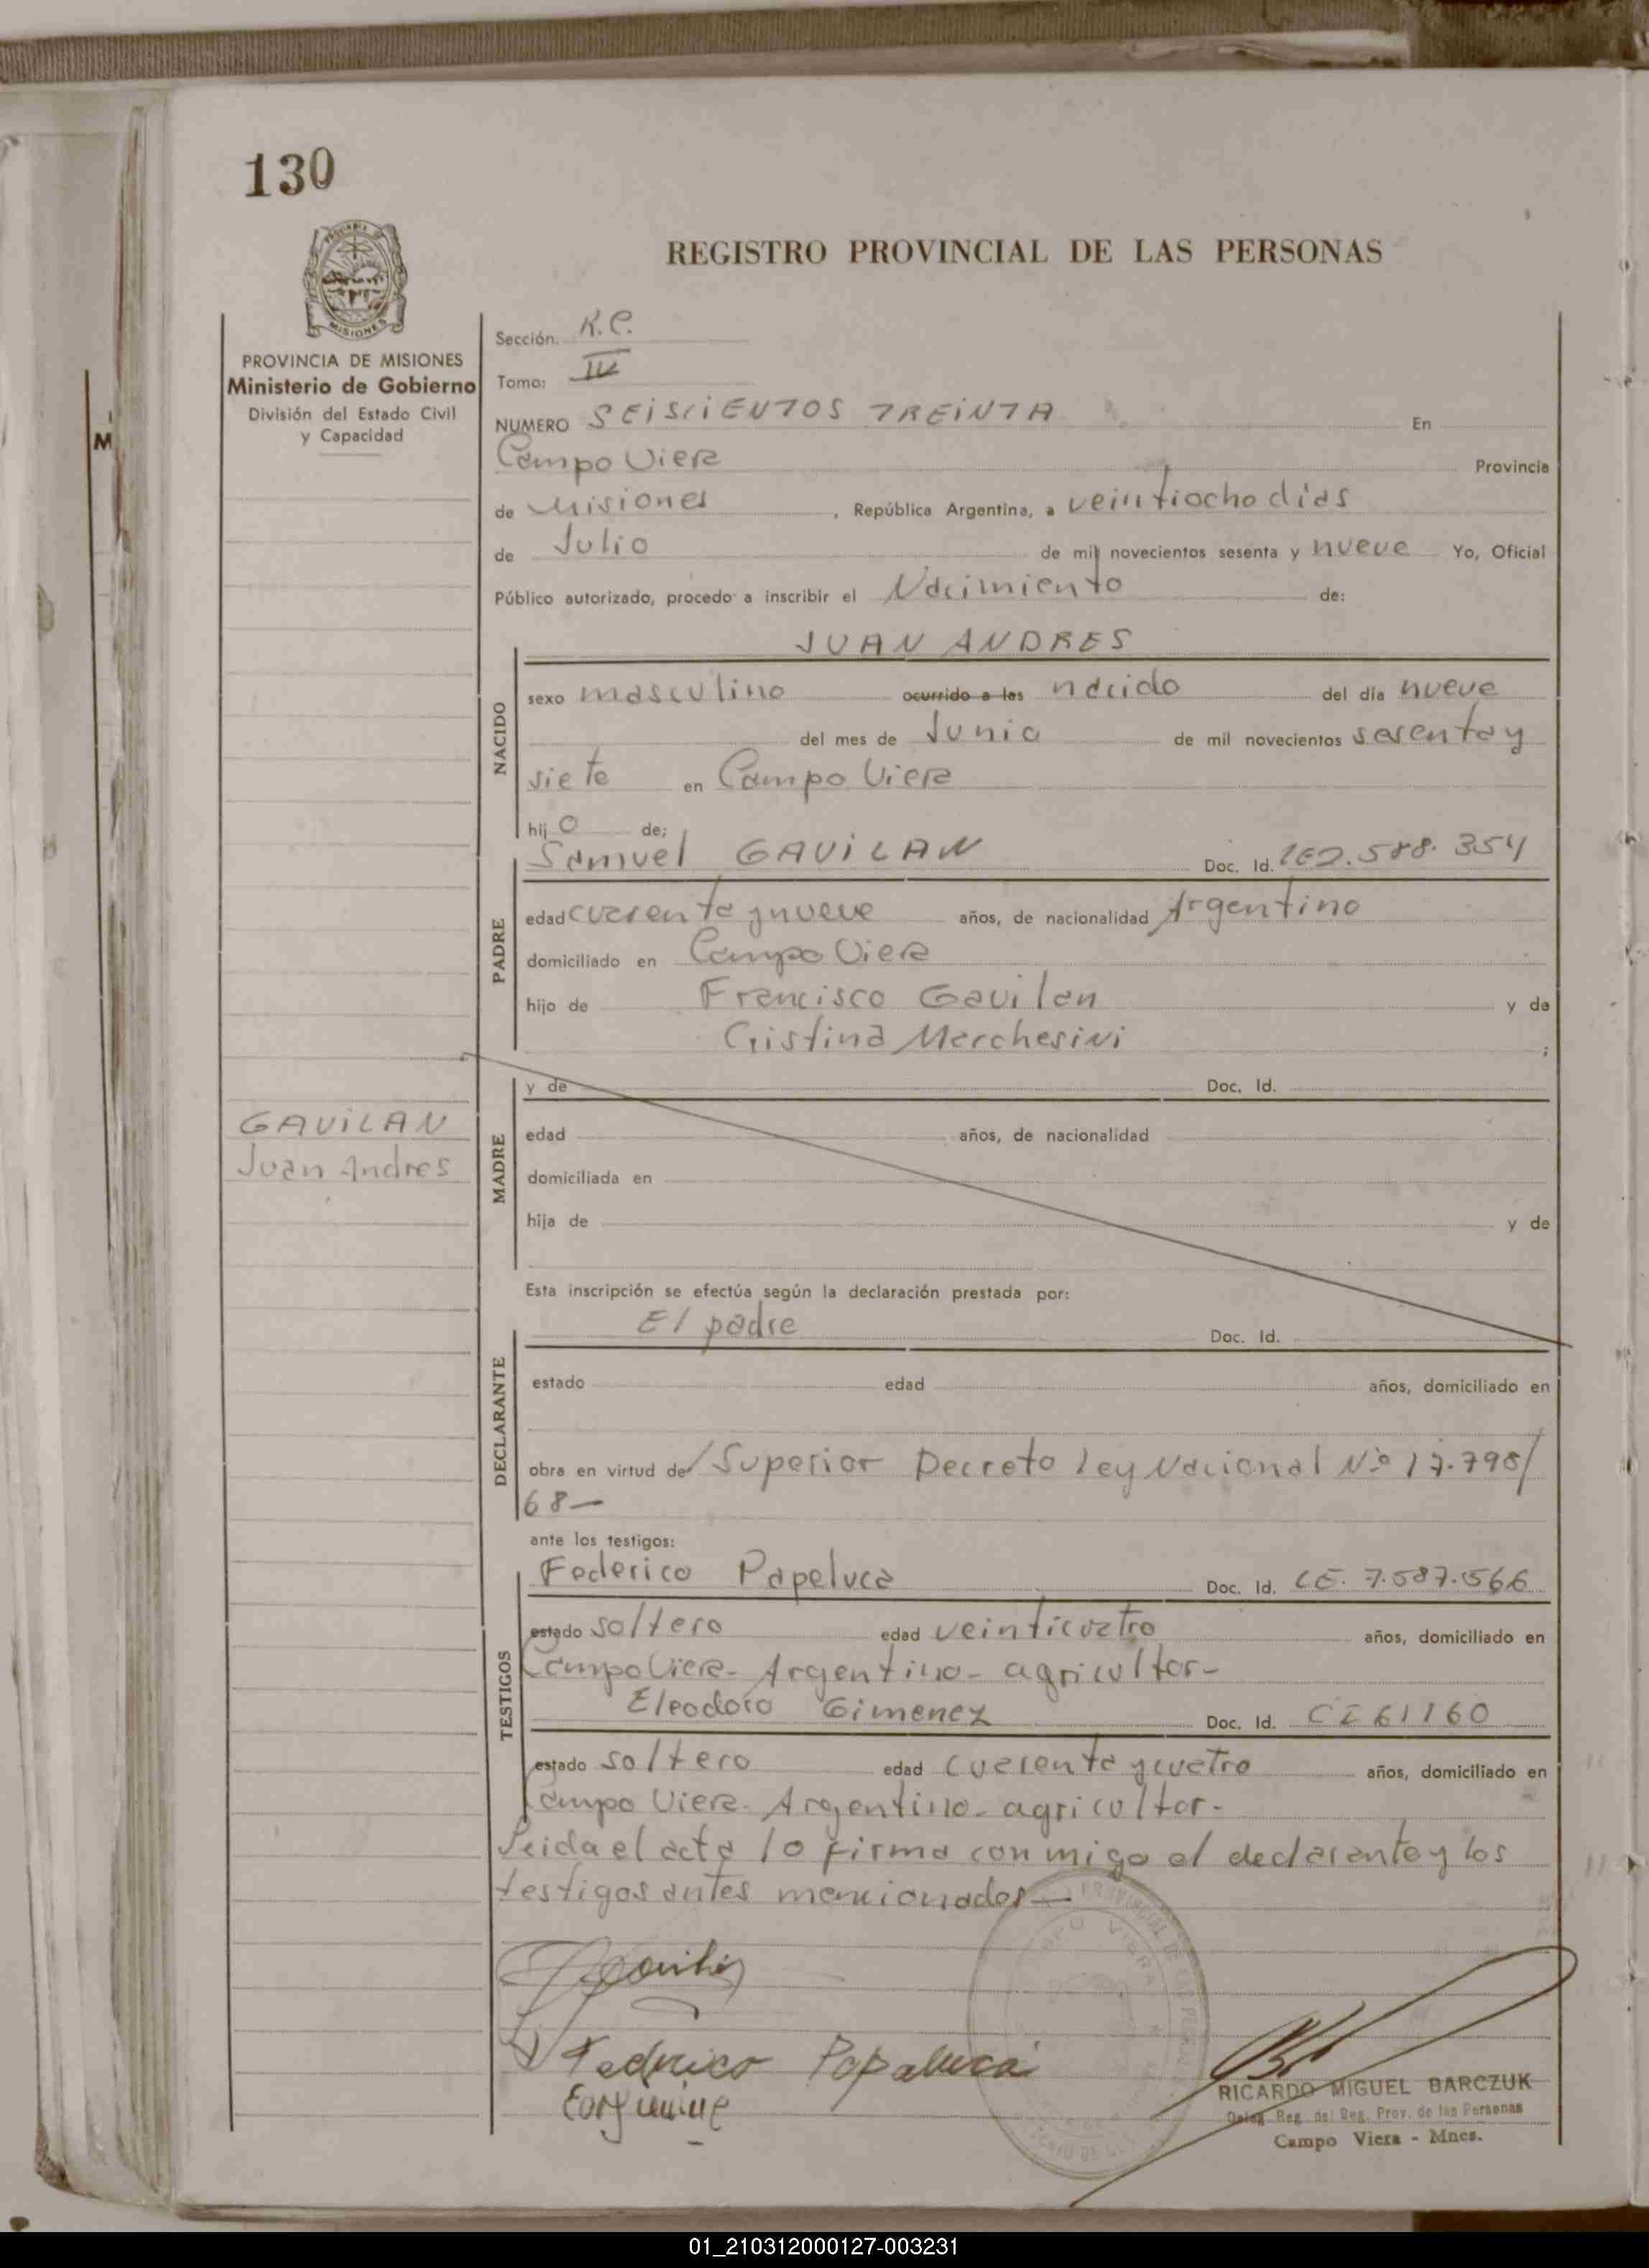 130
REGISTRO PROVINCIAL DE LAS PERSONAS
MISIONES
PROVINCIA DE MISIONES
Ministerio de Gobierno
División del Estado Civil
y Capacidad
M
Sección: K.C.
Tomo: IV
NUMERO SEISCIENTOS TREINTA En
Campo Viera Provincia
de Misiones, República Argentina, a veintiocho dias
de Julio de mil novecientos sesenta y nueve Yo, Oficial
Público autorizado, procedo a inscribir el Nacimiento de:
JUAN ANDRES
NACIDO
sexo masculino ocurrido a las nacido del día nueve
del mes de Junio de mil novecientos sesenta y
siete en Campo Viera
hij o de;
PADRE
Samuel GAVILAN Doc. Id. LE2.588.354
edad cuarenta y nueve años, de nacionalidad Argentino
domiciliado en Campo Viera
hijo de Francisco Gavilan y de
Cristina Marchesini ;
MADRE
y de Doc. Id.
edad años, de nacionalidad
domiciliada en
hija de y de
GAVILAN
Juan Andres
Esta inscripción se efectúa según la declaración prestada por:
DECLARANTE
El padre Doc. Id.
estado edad años, domiciliado en
obra en virtud de/Superior Decreto Ley Nacional Nº 17.798/
68—
ante los testigos:
TESTIGOS
Federico Papeluca Doc. Id. LE. 7.587.566
estado soltero edad veinticuatro años, domiciliado en
Campo Viera- Argentino- agricultor-
Eleodoro Gimenez Doc. Id. CI 61160
estado soltero edad cuarenta y cuatro años, domiciliado en
Campo Viera- Argentino- agricultor-
Leida el acta lo firma conmigo el declarante y los
testigos antes mencionados—
Federico Papaluca
RICARDO MIGUEL BARCZUK
Deleg. Reg. del Reg. Prov. de las Personas
Campo Viera - Mnes.
01_210312000127-003231